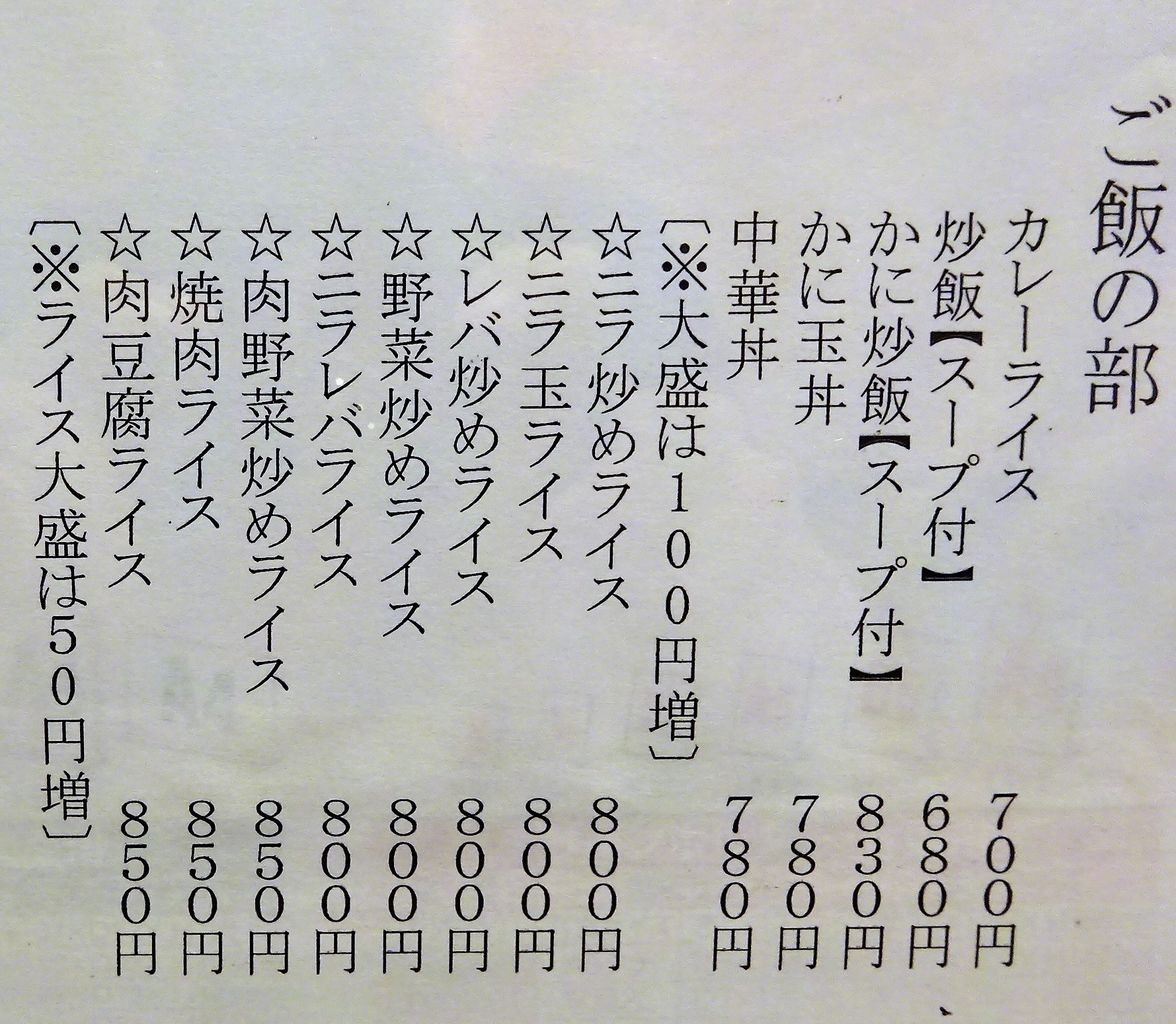 ご飯の部
カレーライス 700円
炒飯【スープ付】 680円
かに炒飯【スープ付】 830円
かに玉丼 780円
中華丼 780円
〔※大盛は100円増〕
☆ニラ炒めライス 800円
☆ニラ玉ライス 800円
☆レバ炒めライス 800円
☆野菜炒めライス 800円
☆ニラレバライス 800円
☆肉野菜炒めライス 850円
☆焼肉ライス 850円
☆肉豆腐ライス 850円
〔※ライス大盛は50円増〕